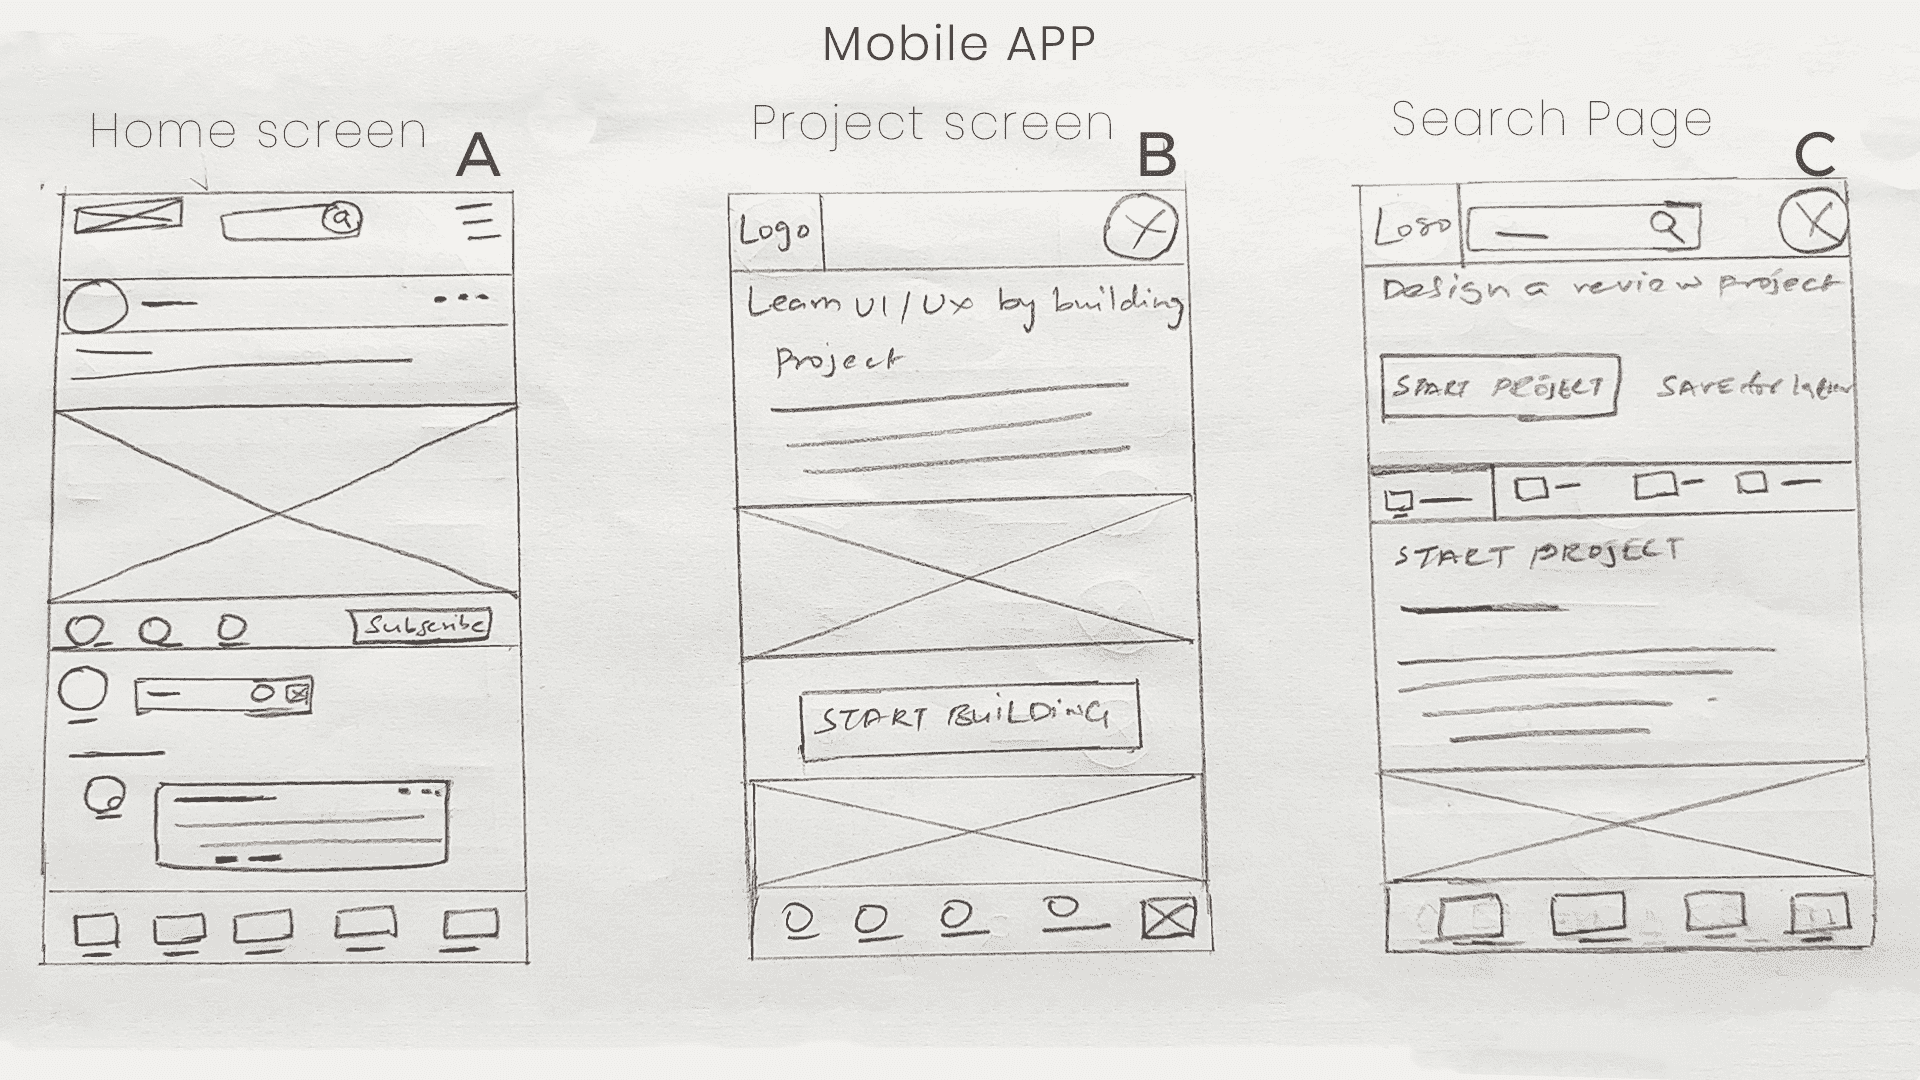 Mobile APP
Home screen
A
Subscribe
Project screen
B
Logo
Learn UI / UX by building
Project
START BUILDING
Search Page
C
Logo
Design a review project
START PROJECT
SAVE for later
START PROJECT